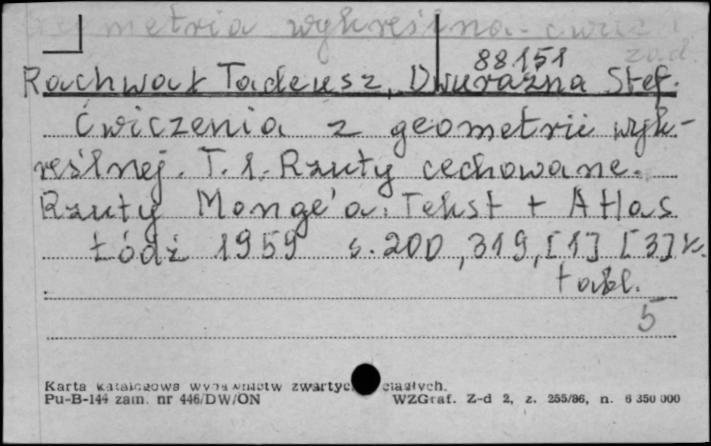 Geometria wykreślna - ćwicz.
zad.
88151
Rachwał Tadeusz, Dwurażna Stef.
Ćwiczenia z geometrii wyk-
reślnej. T. 1. Rzuty cechowane.
Rzuty Monge'a. Tekst + Atlas
Łódź 1959 s. 200, 319, [1] [3] k.
tabl.
5
Karta katalogowa wydawnictw zwartych ciągłych.
Pu-B-144 zam. nr 446/DW/ON WZGraf. Z-d 2, z. 255/86, n. 6 350 000